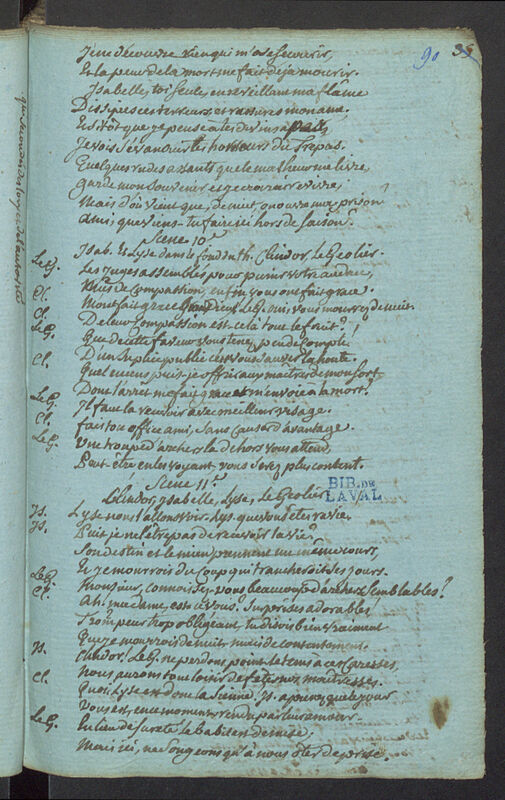 90 35
Je ne découvre rien qui m'ose secourir,
Et la peur de la mort me fait déja mourir.
Isabelle, toi seule, en réveillant ma flâme
Dissipes ces terreurs, et rassures mon ame.
Et sitôt que je pense à tes divins
Je vois s'évanouir les horreurs du trépas.
Quelques rudes assauts que le malheur me livre,
garde mon souvenir et je croirai revivre,
Mais d'où vient que, de nuit, on ouvre ma prison?
ami, que viens-tu faire ici hors de saison?
Scene 10e
Isab. et Lyse dans le fond du th. Clindor, Le Geolier.
Le G. Les juges assemblés pour punir votre audace,
Mus de compassion, enfin vous ont fait grace.
Cl. M'ont fait grace, Le G. oui, vous mourrez de nuit.
Cl. De leur compassion est-ce là tout le fruit?
Le G. Que de cette faveur vous tenez peu de compte!
D'un suplice public c'est vous sauver la honte.
Cl. Quel encens puis-je offrir aux maitres de mon sort
Dont l'arrêt me fait grace et m'envoie à la mort?
Le G. Il faut la recevoir avec meilleur visage.
Cl. fais ton office ami, sans causer d'avantage.
Le G. Une troupe d'archers là dehors vous attend,
Peut-être en les voyant vous serez plus content.
Scene 11e
Clindor, Isabelle, Lyse, Le Geolier
BIB. DE
LAVAL
Is. Lyse nous l'allons voir. Lys. que vous êtes ravie.
Is. Puis je ne l'être pas de recevoir la vie?
Son destin et le mien prennent un même cours,
Et je mourrois du coup qui trancheroit ses jours.
Le G. Monsieur, connoissez-vous beaucoup d'archers semblables?
Cl. Ah! madame, est-ce vous? surprises adorables
Trompeur trop obligeant, tu disois bien vraiment
Que je mourrois de nuit, mais de contentement.
Is. Clindor! Le G. ne perdons point le tems à ces caresses,
Nous aurons tout loisir de fêter nos maitresses.
Cl. Quoi, Lyse est donc la sienne, Is. aprenez que le jour
Vous est, en ce moment, rendu par leur amour.
Le G. En lieu de sureté le babil est de mise,
Mais ici, ne songeons qu'à nous ôter de prise.